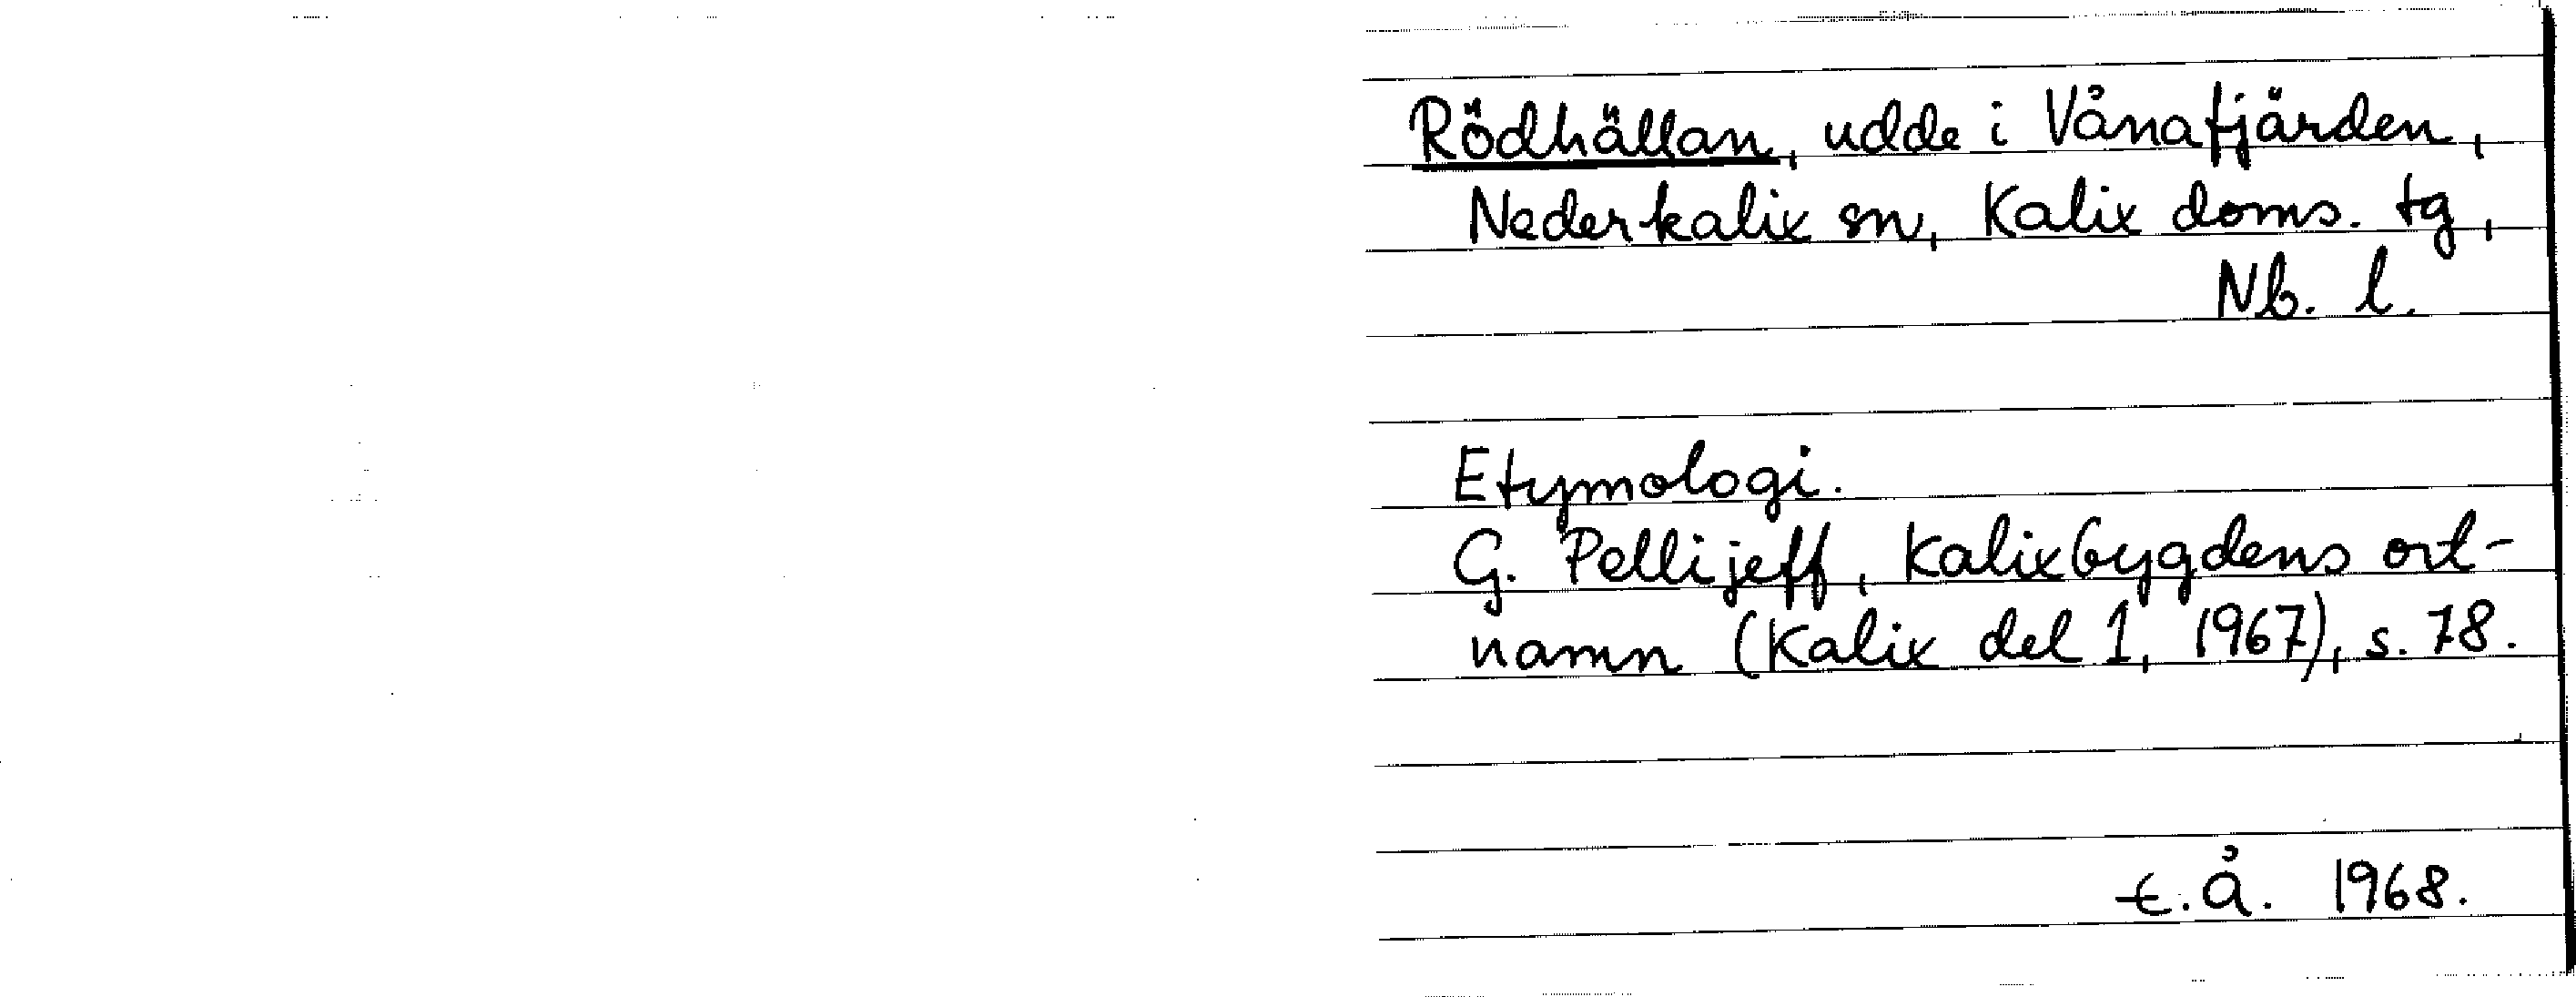 Rödhällan, udde i Vånafjärden,
Nederkalix sn, Kalix doms. tg,
Nb. l.
Etymologi.
G. Pellijeff, Kalixbygdens ort-
namn (Kalix del 1, 1967), s. 78.
t.å. 1968.